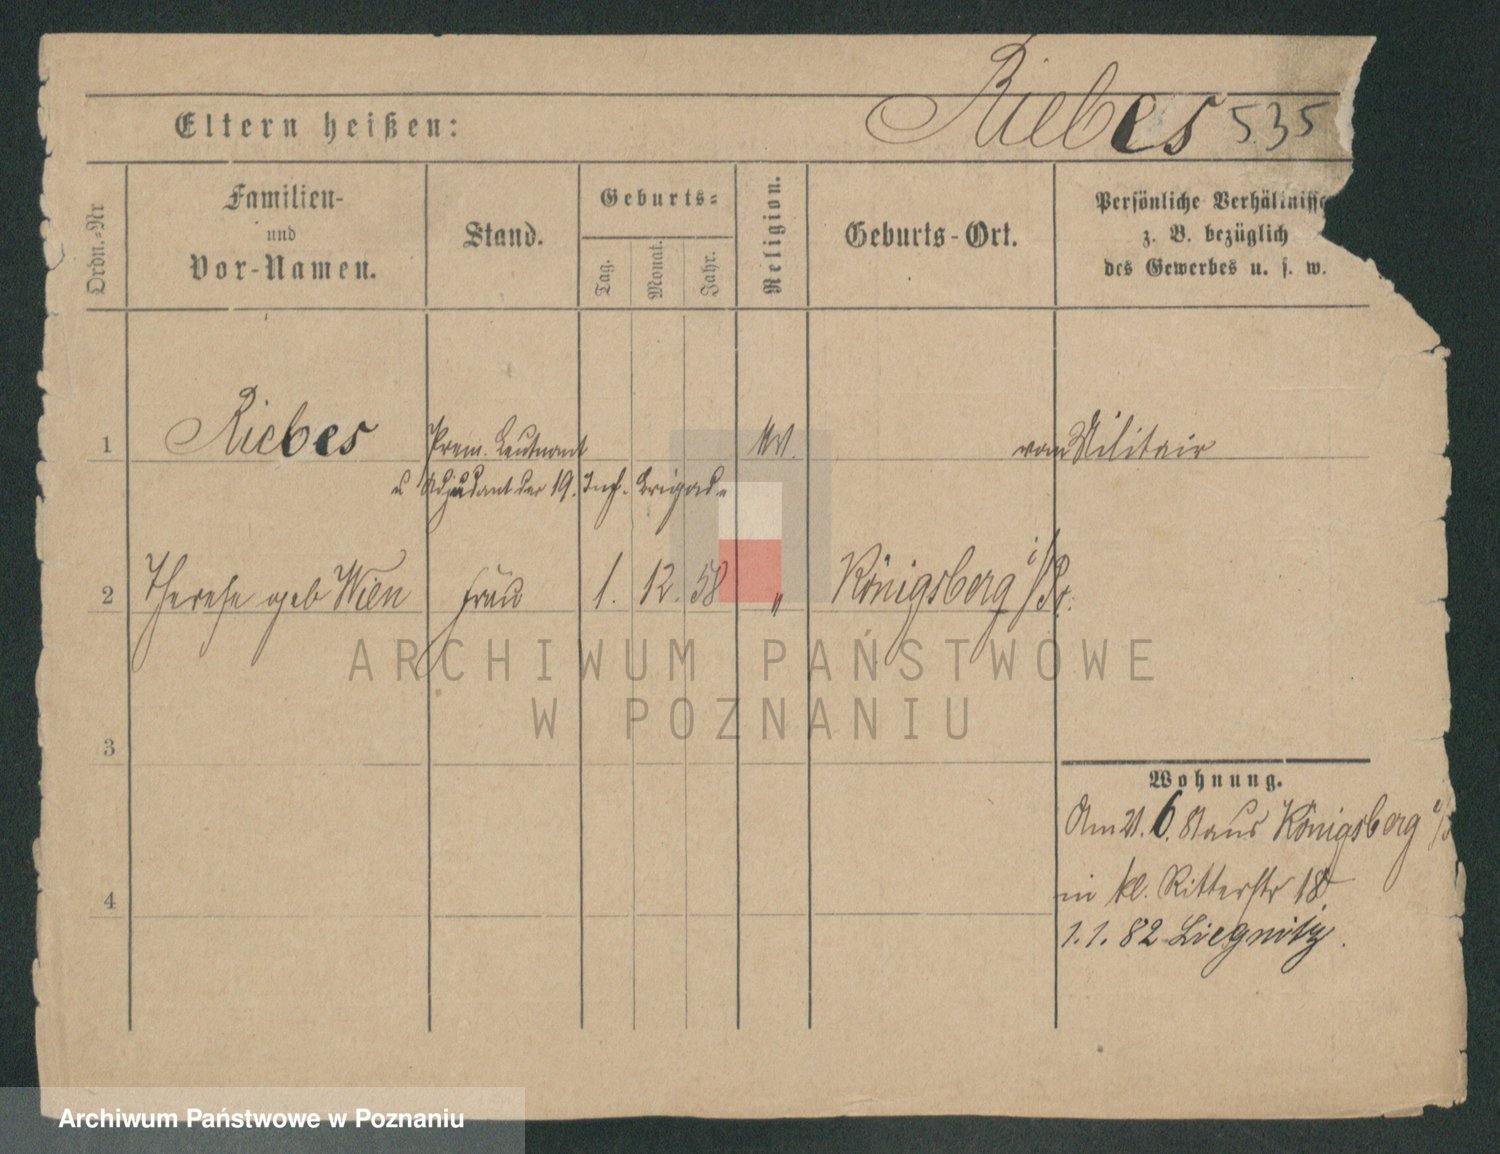 Riebes 535
Eltern heißen:
Ordn.-Nr
Familien-
und
Vor-Namen.
Stand.
Geburts-
Tag.
Monat.
Jahr.
Religion.
Geburts-Ort.
Persönliche Verhältnisse
z. B. bezüglich
des Gewerbes u. s. w.
1 Riebes Prem. Leutnant vom Militair
u Adjudant der 19. Inf. Brigade
2 Therese geb Wien Frau 1. 12. 58 " Königsberg i/Pr.
ARCHIWUM PAŃSTWOWE
W POZNANIU
3
Wohnung.
Am 21. 6. 81 aus Königsberg
in kl. Ritterstr 18
4
1. 1. 82 Liegnitz.
Archiwum Państwowe w Poznaniu